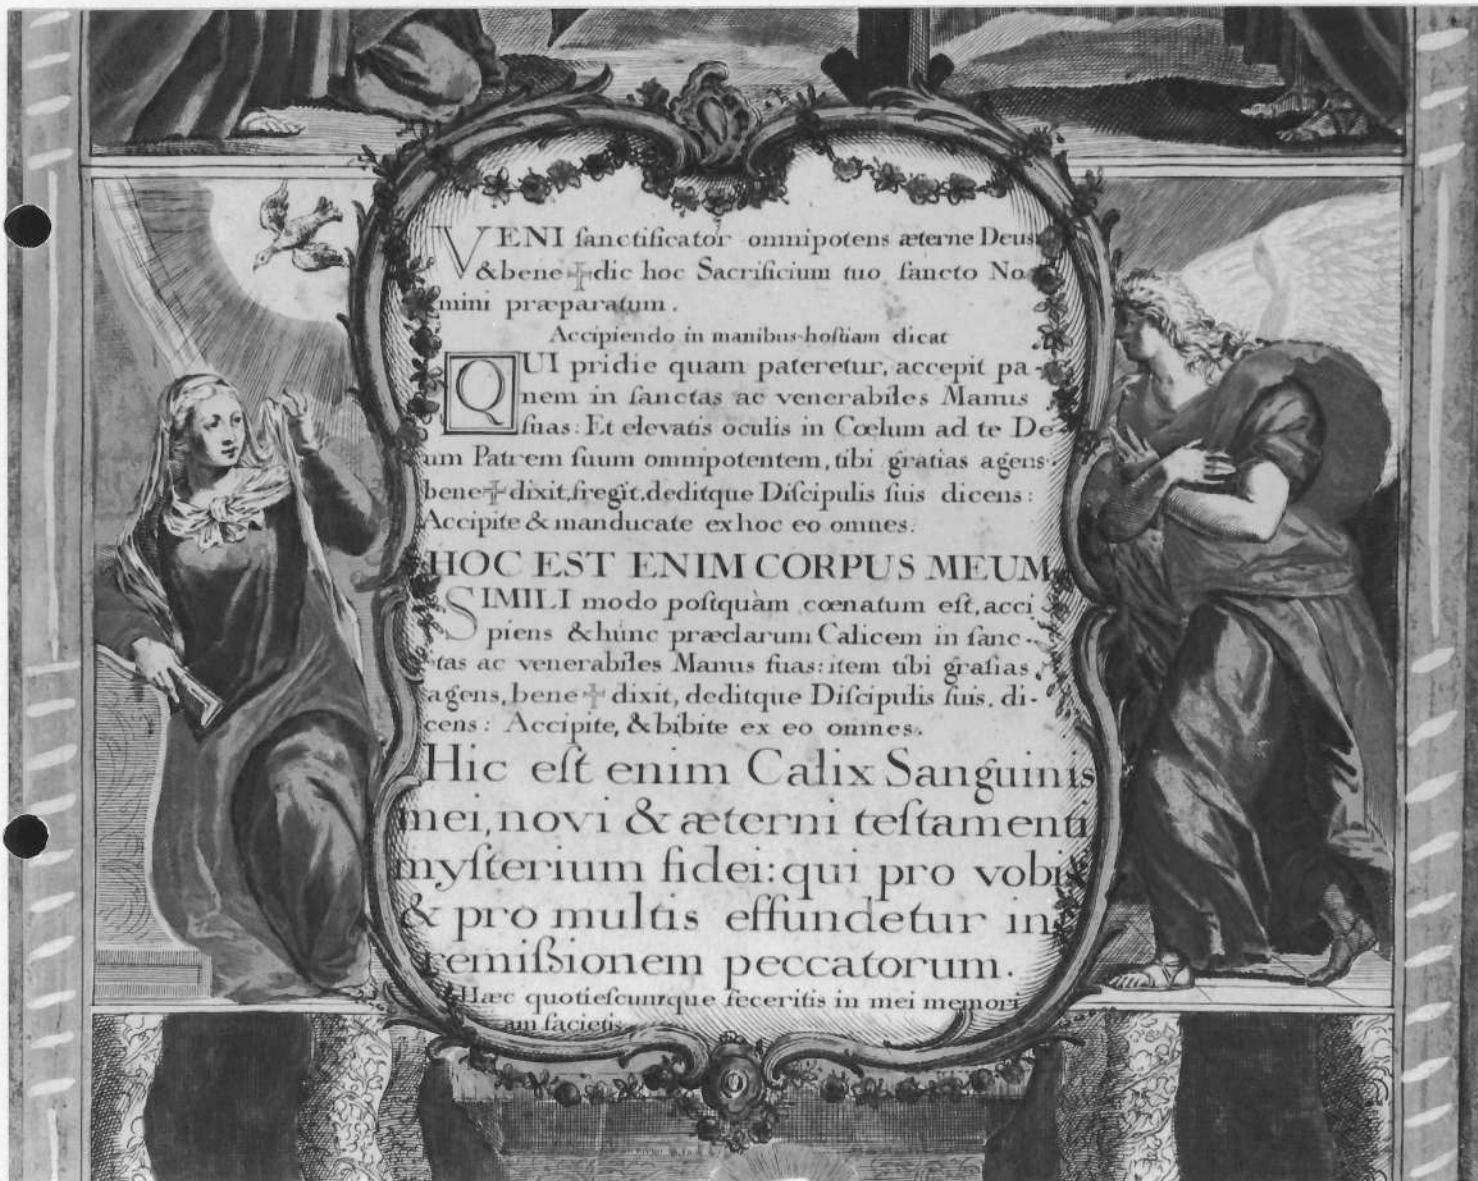 VENI ſanctificator omnipotens æterne Deus
& bene ✠ dic hoc Sacrificium tuo ſancto No
mini præparatum.
Accipiendo in manibus hoſtiam dicat
QUI pridie quam pateretur, accepit pa-
nem in ſanctas ac venerabiles Manus
ſuas: Et elevatis oculis in Cœlum ad te De
um Patrem ſuum omnipotentem, tibi gratias agens
bene ✠ dixit, fregit, deditque Diſcipulis ſuis dicens:
Accipite & manducate ex hoc eo omnes.
HOC EST ENIM CORPUS MEUM
SIMILI modo poſtquàm cœnatum eſt, acci
piens & hunc præclarum Calicem in ſanc-
tas ac venerabiles Manus ſuas: item tibi graſias,
agens, bene ✠ dixit, deditque Diſcipulis ſuis, di-
cens: Accipite, & bibite ex eo omnes.
Hic eſt enim Calix Sanguinis
mei, novi & æterni teſtamenti
myſterium fidei: qui pro vobis
& pro multis effundetur in
remiſsionem peccatorum.
Hæc quotieſcumque feceritis in mei memori
am facietis